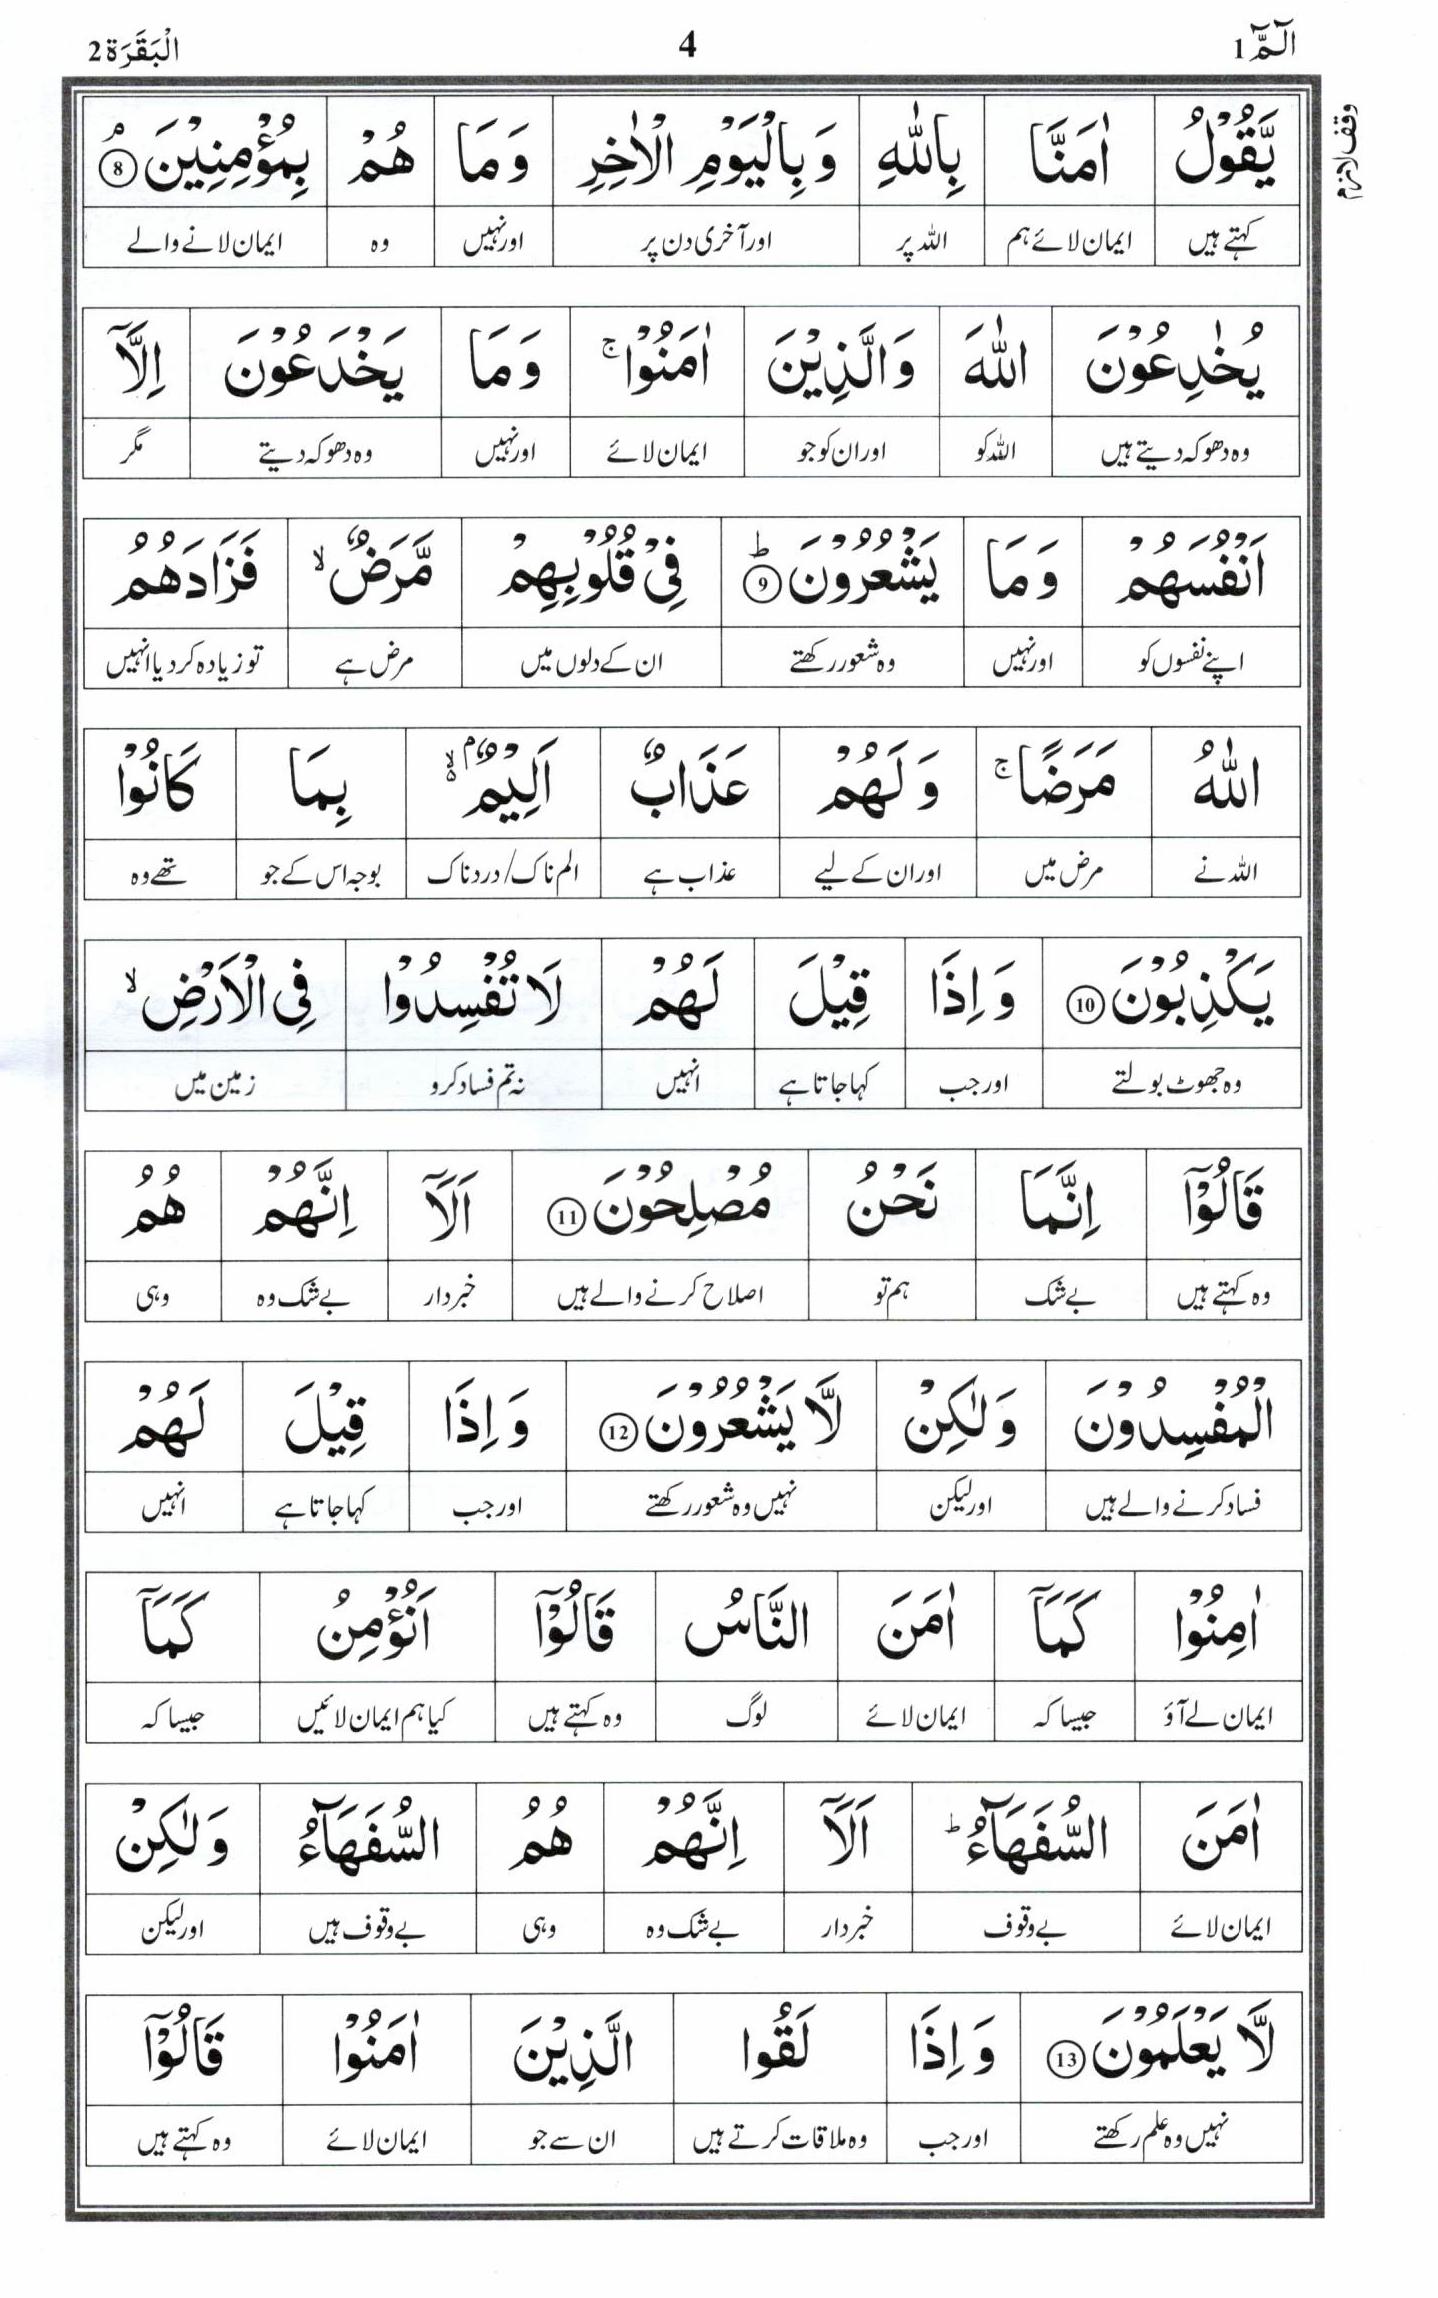 الٓمّٓ 1 4 الْبَقَرَة 2
وقف لازم
يَّقُوْلُ اٰمَنَّا بِاللّٰهِ وَبِالْيَوْمِ الْاٰخِرِ وَمَا هُمْ بِمُؤْمِنِيْنَ ۘ 8
کہتے ہیں ایمان لائے ہم اللہ پر اور آخری دن پر اور نہیں وہ ایمان لانے والے
يُخٰدِعُوْنَ اللّٰهَ وَالَّذِيْنَ اٰمَنُوْا ۚ وَمَا يَخْدَعُوْنَ اِلَّآ
وہ دھوکہ دیتے ہیں اللہ کو اور ان کو جو ایمان لائے اور نہیں وہ دھوکہ دیتے مگر
اَنْفُسَهُمْ وَمَا يَشْعُرُوْنَ ؕ 9 فِيْ قُلُوْبِهِمْ مَّرَضٌ ۙ فَزَادَهُمُ
اپنے نفسوں کو اور نہیں وہ شعور رکھتے ان کے دلوں میں مرض ہے تو زیادہ کر دیا انہیں
اللّٰهُ مَرَضًا ۚ وَلَهُمْ عَذَابٌ اَلِيْمٌۢ ۙ۬ بِمَا كَانُوْا
اللہ نے مرض میں اور ان کے لیے عذاب ہے الم ناک/دردناک بوجہ اس کے جو تھے وہ
يَكْذِبُوْنَ 10 وَاِذَا قِيْلَ لَهُمْ لَا تُفْسِدُوْا فِي الْاَرْضِ ۙ
وہ جھوٹ بولتے اور جب کہا جاتا ہے انہیں نہ تم فساد کرو زمین میں
قَالُوْٓا اِنَّمَا نَحْنُ مُصْلِحُوْنَ 11 اَلَآ اِنَّهُمْ هُمُ
وہ کہتے ہیں بے شک ہم تو اصلاح کرنے والے ہیں خبردار بے شک وہ وہی
الْمُفْسِدُوْنَ وَلٰكِنْ لَّا يَشْعُرُوْنَ 12 وَاِذَا قِيْلَ لَهُمْ
فساد کرنے والے ہیں اور لیکن نہیں وہ شعور رکھتے اور جب کہا جاتا ہے انہیں
اٰمِنُوْا كَمَآ اٰمَنَ النَّاسُ قَالُوْٓا اَنُؤْمِنُ كَمَآ
ایمان لے آؤ جیسا کہ ایمان لائے لوگ وہ کہتے ہیں کیا ہم ایمان لائیں جیسا کہ
اٰمَنَ السُّفَهَآءُ ؕ اَلَآ اِنَّهُمْ هُمُ السُّفَهَآءُ وَلٰكِنْ
ایمان لائے بے وقوف خبردار بے شک وہ وہی بے وقوف ہیں اور لیکن
لَّا يَعْلَمُوْنَ 13 وَاِذَا لَقُوا الَّذِيْنَ اٰمَنُوْا قَالُوْٓا
نہیں وہ علم رکھتے اور جب وہ ملاقات کرتے ہیں ان سے جو ایمان لائے وہ کہتے ہیں